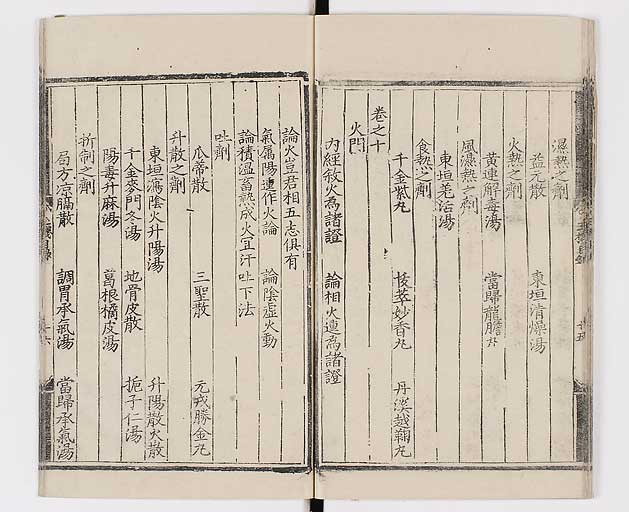 濕熱之劑
益元散 東垣清燥湯
火熱之劑
黃連解毒湯 當歸龍膽丸
風濕熱之劑
東垣羌活湯
食熱之劑
千金紫丸 枝萃妙香丸 丹溪越鞠丸
卷之十
火門
內經敘火為諸證 論相火遷為諸證
論火豈君相五志俱有
氣属陽運作火論 論陰虛火動
論積溫畜熱成火宜汗吐下法
吐劑
瓜蒂散 三聖散 元戎勝金丸
升散之劑
東垣瀉陰火升陽湯 升陽散火散
千金麥門冬湯 地骨皮散 梔子仁湯
陽毒升麻湯 葛根橘皮湯
折制之劑
局方凉膈散 調胃承氣湯 當歸承氣湯